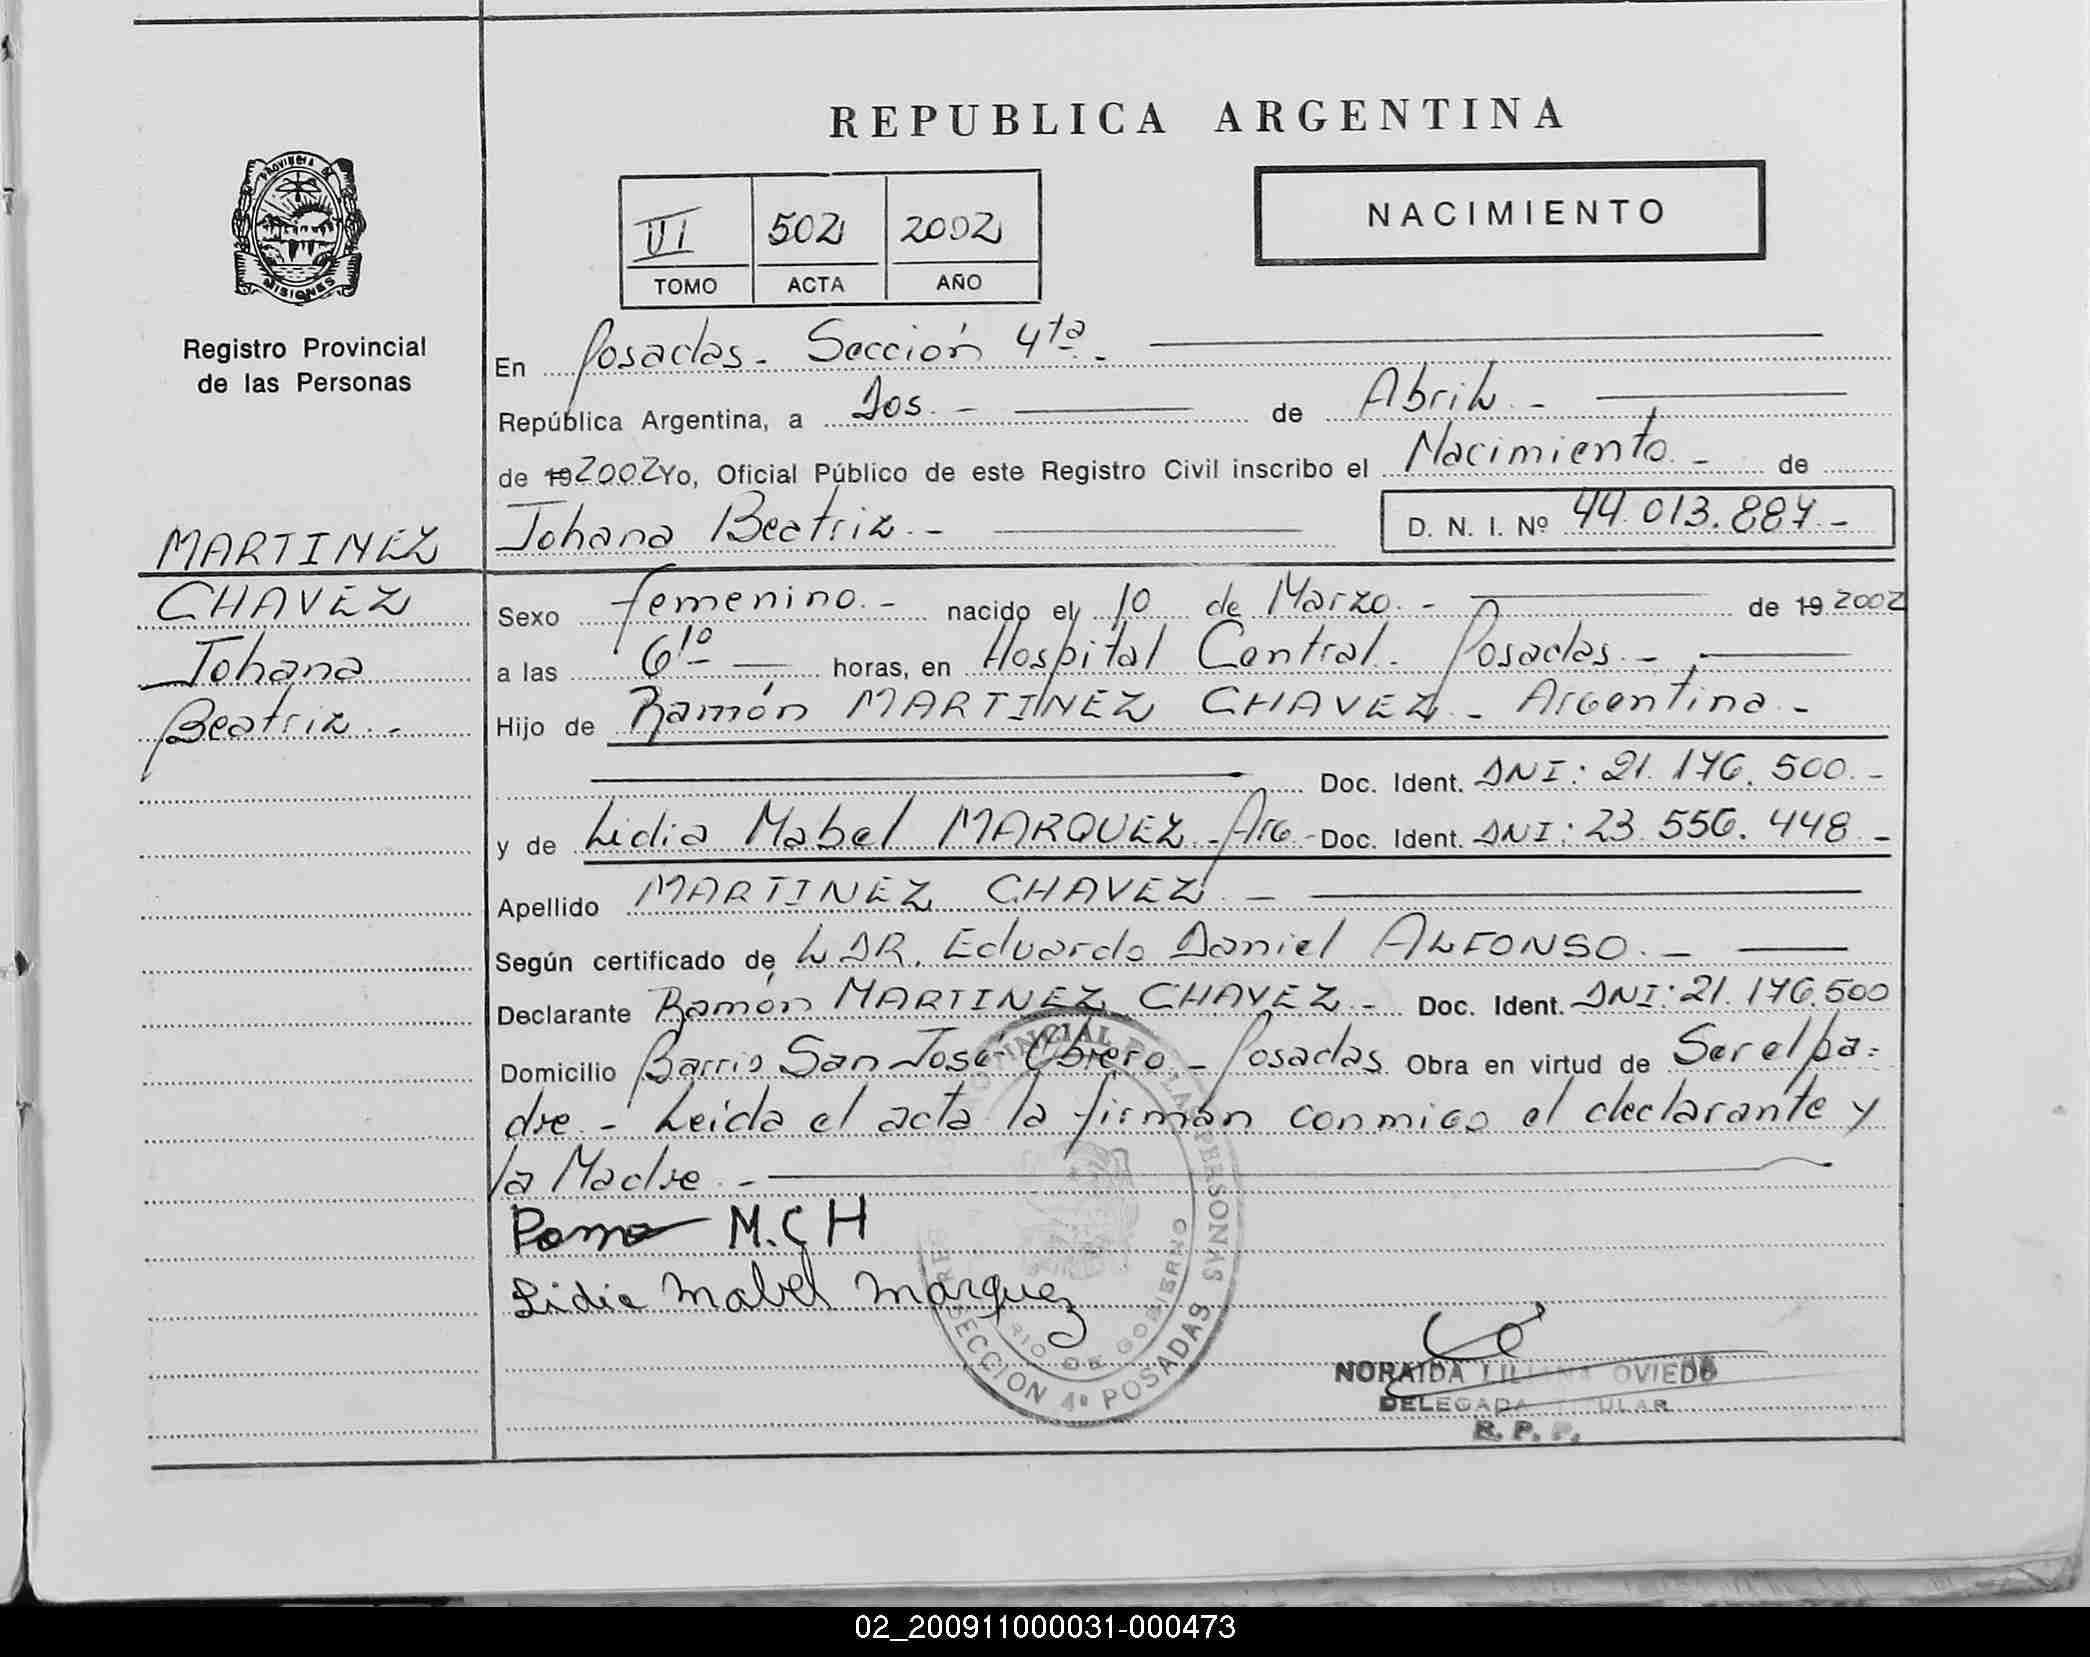 REPUBLICA ARGENTINA
PROVINCIA DE MISIONES
VI 502 2002
TOMO ACTA AÑO
NACIMIENTO
Registro Provincial
de las Personas
En Posadas - Sección 4ta -
República Argentina, a Dos. - de Abril. -
de 19 2002 Yo, Oficial Público de este Registro Civil inscribo el Nacimiento. - de
Johana Beatriz. - D. N. I. Nº 44.013.887 -
MARTINEZ
CHAVEZ
Johana
Beatriz. -
Sexo femenino. - nacido el 10 de Marzo. - de 19 2002
a las 6 10 horas, en Hospital Central. Posadas. -
Hijo de Ramón MARTINEZ CHAVEZ - Argentina. -
Doc. Ident. DNI: 21.176.500. -
y de Lidia Mabel MARQUEZ - Arg. - Doc. Ident. DNI: 23.556.448 -
Apellido MARTINEZ CHAVEZ. -
Según certificado de L DR. Eduardo Daniel ALFONSO. -
Declarante Ramón MARTINEZ CHAVEZ. - Doc. Ident. DNI: 21.176.500
Domicilio Barrio San José Obrero - Posadas Obra en virtud de Ser el pa=
dre. - Leída el acta la firman conmigo el declarante y
la Madre. -
M.CH
Lidia Mabel Marquez
SECCION 4ª POSADAS
NORAIDA LILIANA OVIEDO
DELEGADA TITULAR
R. P. P.
02_200911000031-000473